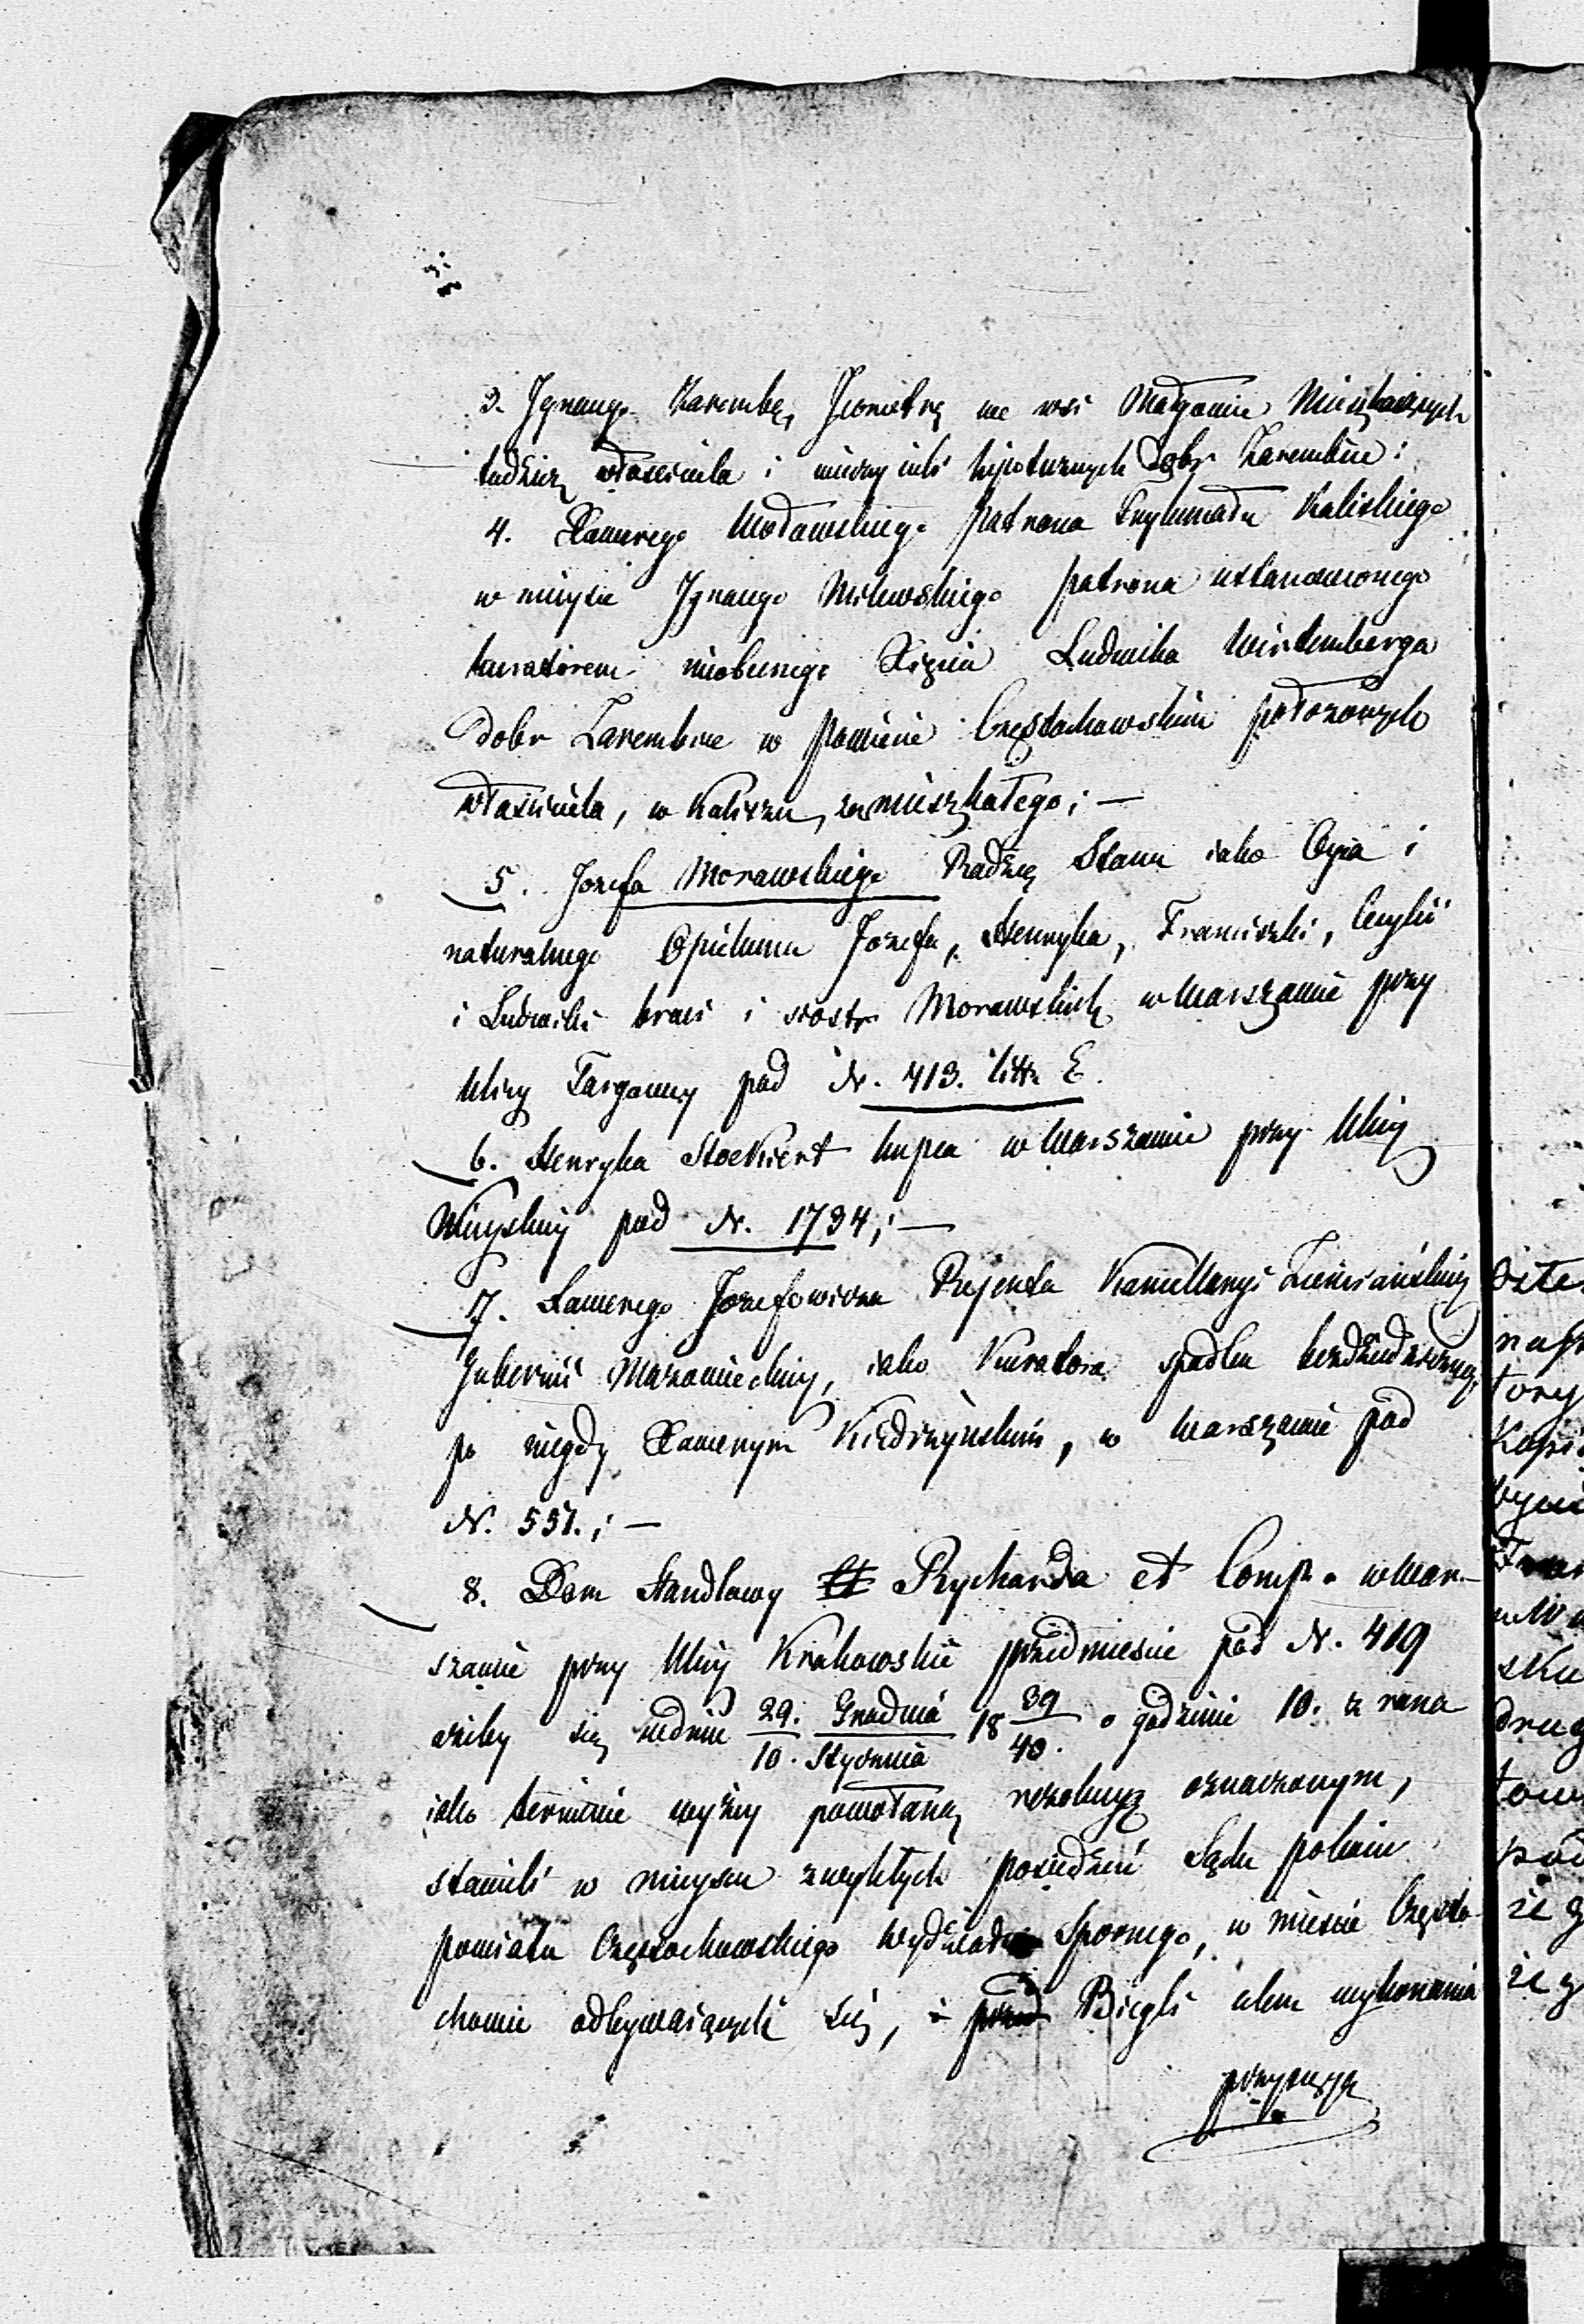 3. Ignacego Zarembę Jeometrę we wsi Małgowie Mieszkaiących
tudzież właściciela i wierzycieli hipotecznych dobr Zarembice i
4. Xawerego Wodawskiego patrona Trybunału Kaliskiego
w mieyscu Ignacego Milewskiego patrona ustanowionego
kuratorem nieobecnego Xięcia Ludwika Wirtemberga
dobr Zarembice w powiecie Częstochowskim położonych
właściciela, w Kaliszu zamieszkałego; —
5. Jozefa Morawskiego Radzcę Stanu iako Oyca i
naturalnego Opiekuna Jozefa, Henryka, Franciszki, Cecylii
i Ludwiki braci i siostr Morawskich w Warszawie przy
Ulicy Targowey pod N. 413. litt. E.
6. Henryka Stoekiert kupca w Warszawie przy Ulicy
Wieyskiey pod N. 1734; —
7. Xawerego Jozefowicza Rejenta Kancellaryi Ziemiańskiey
Gubernii Mazowieckiey, iako Kuratora spadku bezdziedzicznego
po niegdy Xawerym Kiedrzyńskim, w Warszawie pod
N. 557.; —
8. Dom Handlowy Rycharda et Comp. w War-
szawie przy Ulicy Krakowskie przedmiescie pod N. 419
ażeby się w dniu 29. Grudnia/10. Stycznia 18 39/40. o godzinie 10. z rana
iako terminie wyżey powołaną rezolucyą oznaczonym,
stawili w mieyscu zwykłych posiedzeń Sądu pokoiu
powiatu Częstochowskiego Wydziału Spornego, w miescie Często
chowie odbywaiących się, i przed Biegli celem wykonania
przysięgi